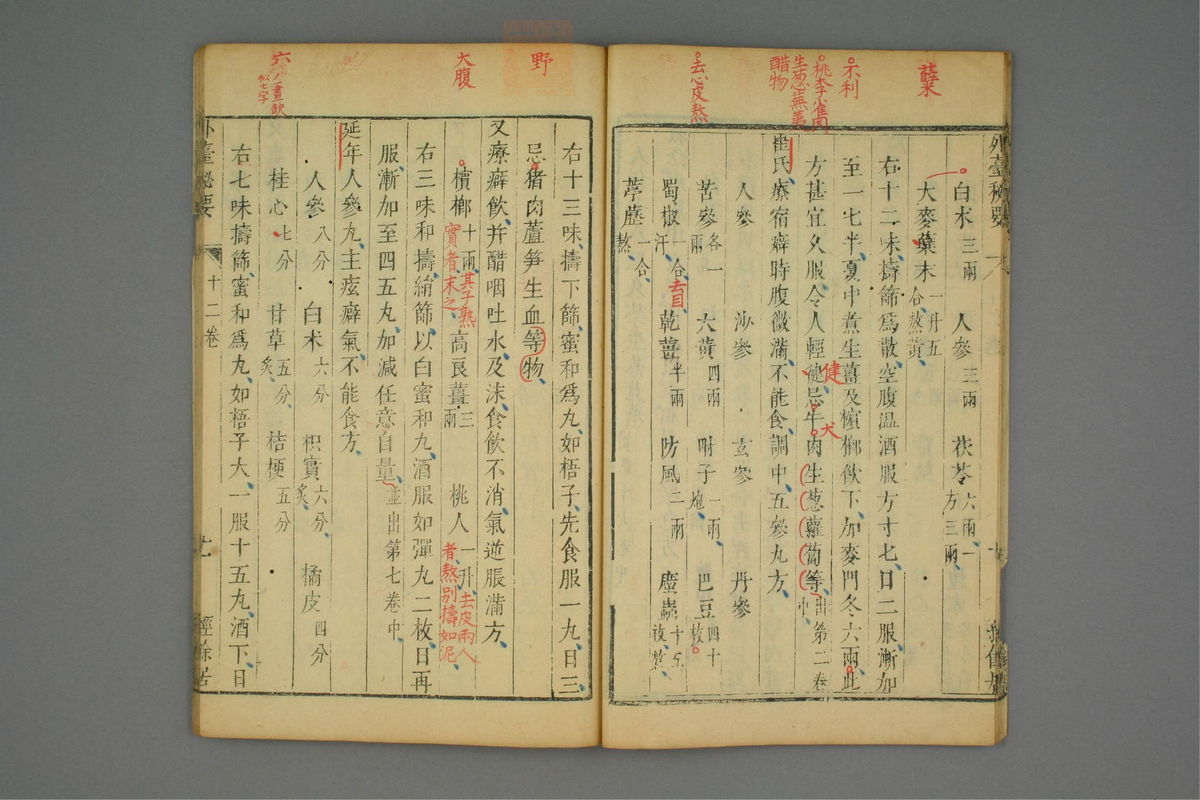 蘖
示利
桃李小隹肉
生葱蕪荑
醋物
去心皮熬
外臺秘要
白朮三兩 人參三兩 茯苓六兩一方三兩
大麥蘖末一升五合熬黃
右十二味擣篩爲散空腹溫酒服方寸匕日二服漸加
至一匕半夏中煮生薑及檳榔飲下加麥門冬六兩此
方甚宜久服令人輕健忌牛肉生葱蘿蔔等出第二卷中
健
犬
崔氏療宿癖時腹微滿不能食調中五參丸方
人參 沙參 玄參 丹參
苦參各一兩 大黃四兩 附子一兩炮 巴豆四十枚
蜀椒一合汗 去目 乾薑半兩 防風二兩 䗪蟲十五枚熬
葶藶一合熬
野
大腹
六
八一畫缺
似七字
右十三味擣下篩蜜和爲丸如梧子先食服一丸日三
忌猪肉蘆笋生血等物
又療癖飲并醋咽吐水及沫食飲不消氣逆脹滿方
檳榔十兩 其子熟實者末之 高良薑三兩 桃人一升 去皮兩人者熬別擣如泥
右三味和擣絹篩以白蜜和丸酒服如彈丸二枚日再
服漸加至四五丸加減任意自量並出第七卷中
延年人參丸主痃癖氣不能食方
人參八分 白朮六分 枳實六分炙 橘皮四分
桂心七分 甘草五分炙 桔梗五分
右七味擣篩蜜和爲丸如梧子大一服十五丸酒下日
外臺秘要
十二卷
經餘居